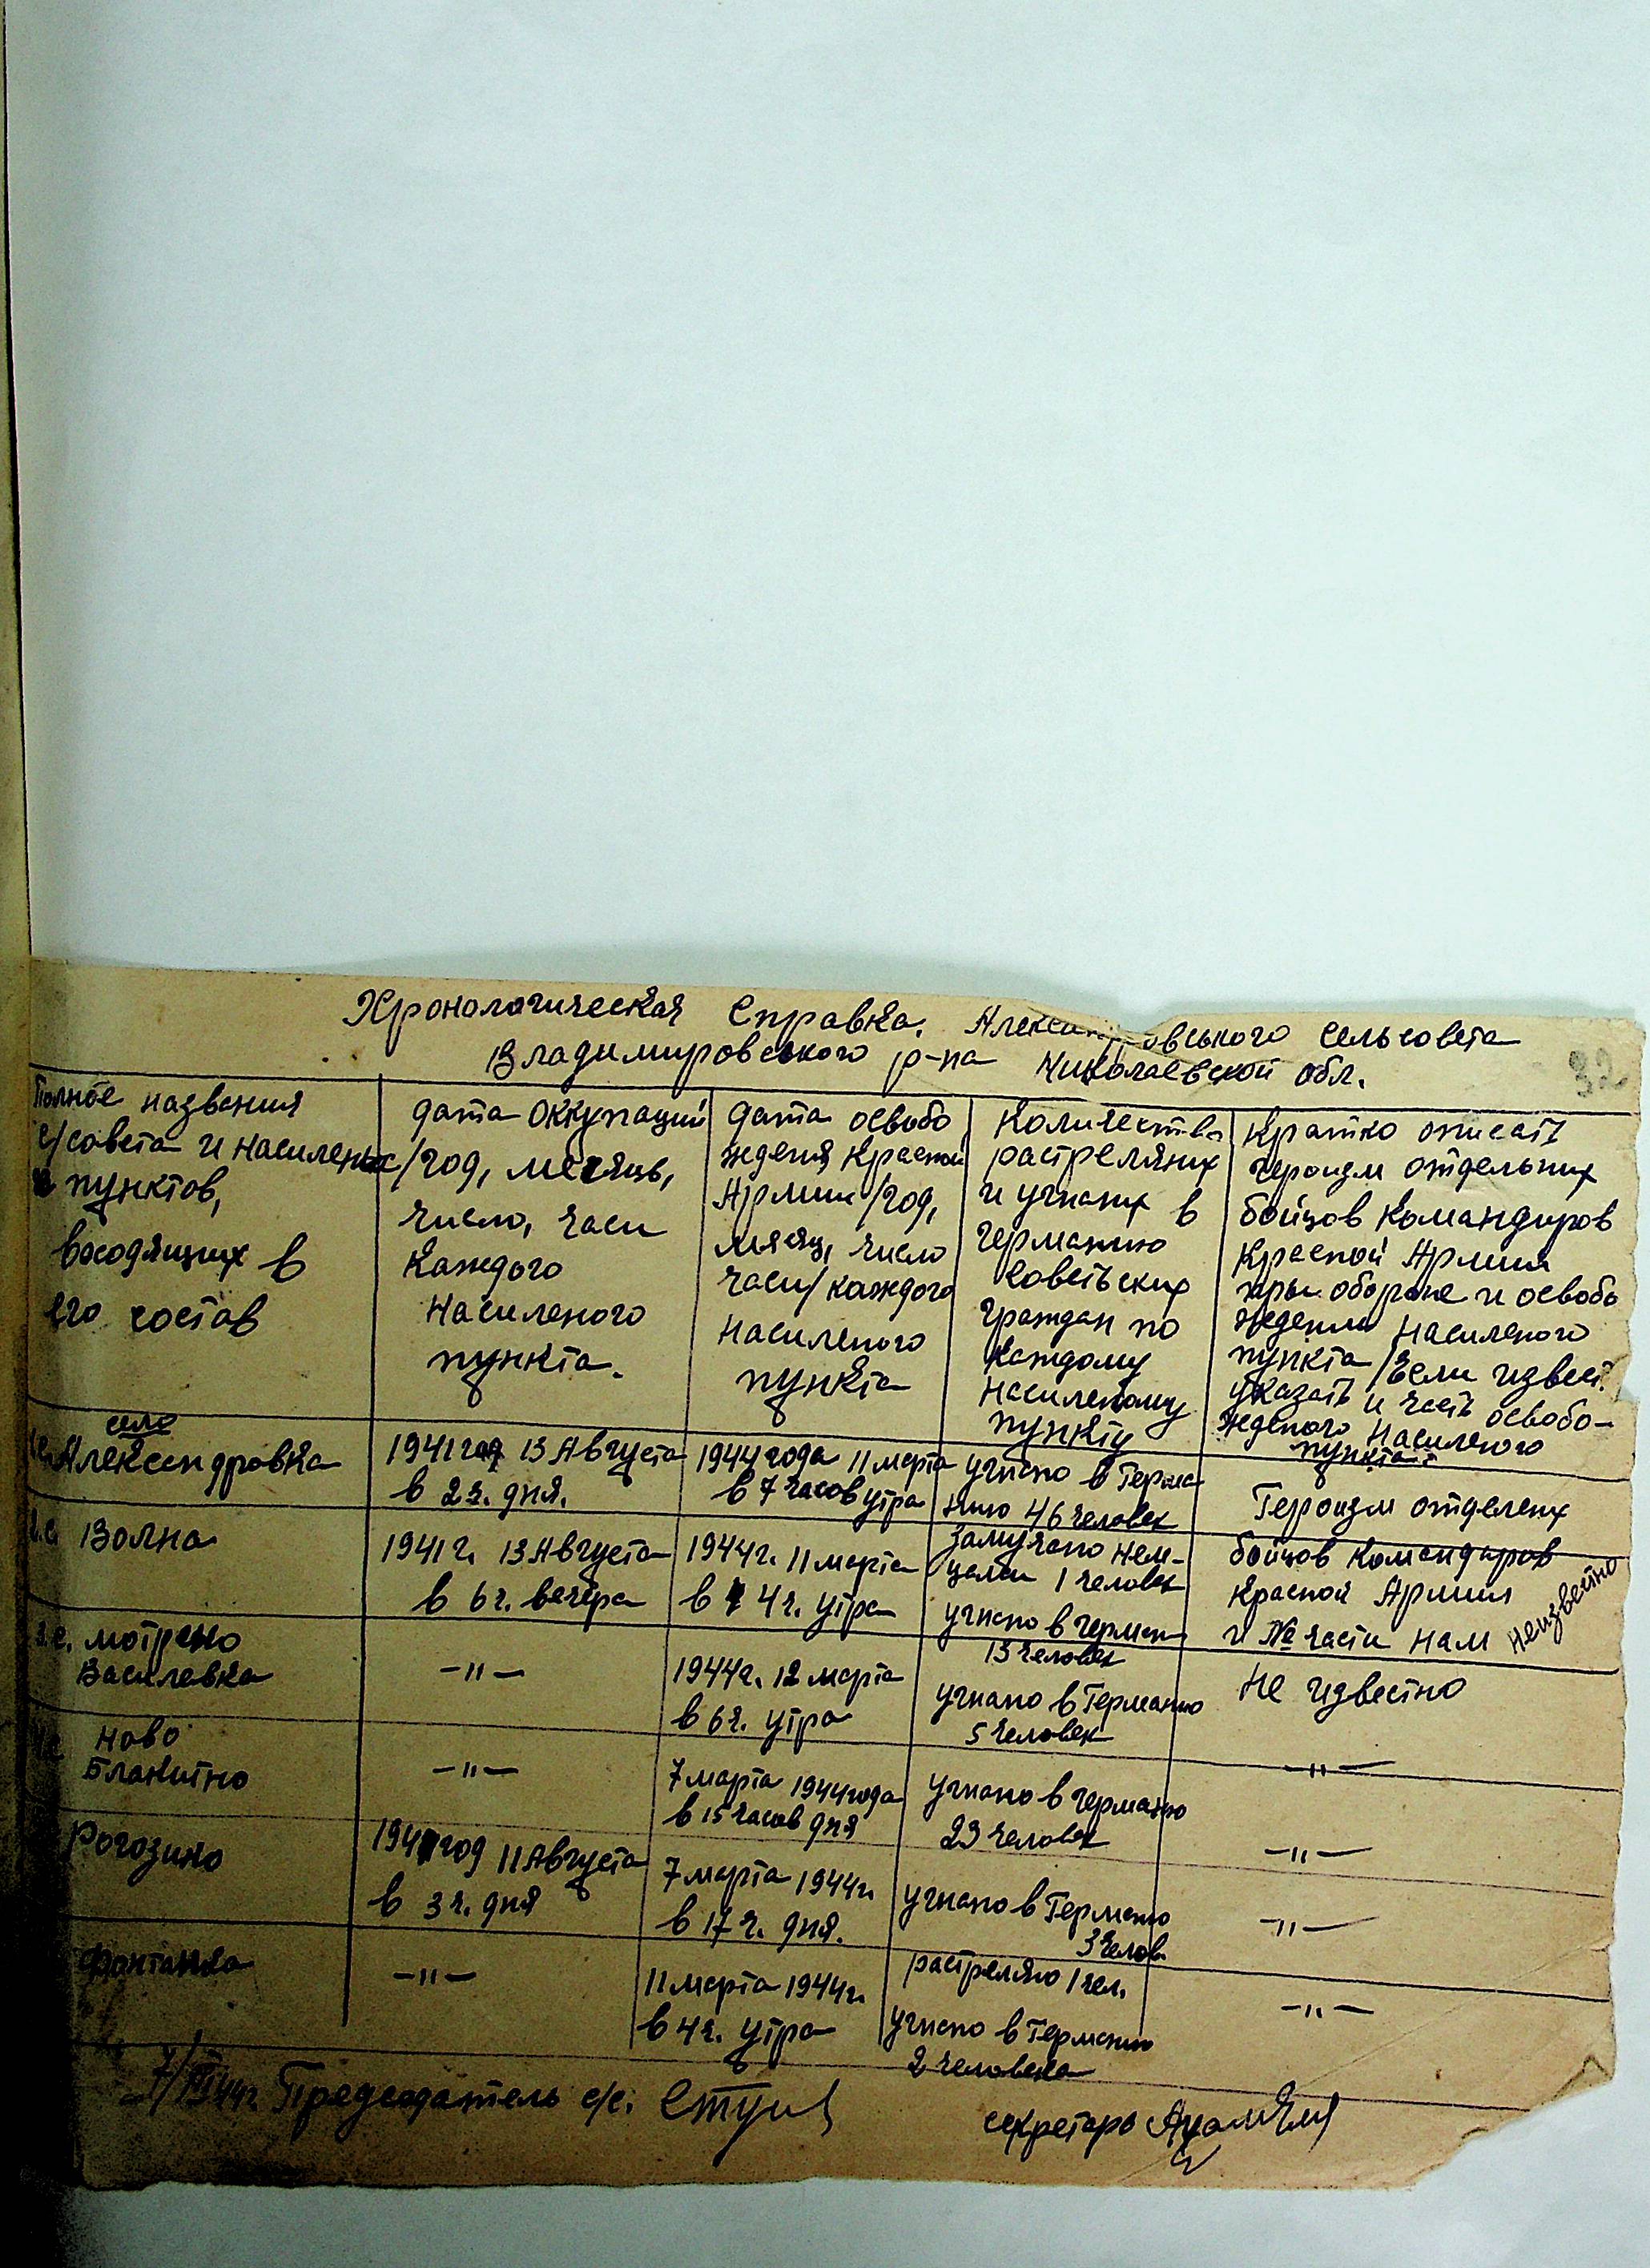 Хронологическая Справка. Александровського сельсовета
Владимировського р-на Николаевской обл.
32
Полное названия
с/совета и населеных
пунктов,
входящих в
его состав
дата оккупаций
/год, месяць,
число, часи
каждого
населеного
пункта.
дата освобо
ждения Красной
Армии /год,
мясяц, число
часи/ каждого
населеного
пункта
Количество
растреляних
и угнаних в
германию
Советьских
граждан по
каждому
населеному
пункту
Кратко описать
героизм отдельних
бойцов командиров
Красной Армии
при обороне и освобо
ждении населеного
пункта /Если извест.
указать и часть освобо-
жденого населеного
пункта
село
Александровка
1941 год 13 Августа
в 2 ч. дня.
1944 года 11 марта
в 7 часов утра
угнано в Герма
нию 46 человек
Героизм отделених
Волна
1941 г. 13 Августа
в 6 ч. вечера
1944 г. 11 марта
в 4 ч. утра
замучано нем-
цами 1 человек
угнано в герман
13 человек
бойцов командиров
Красной Армии
и № части нам неизвестно
мотрено
Василевка
-"-
1944 г. 12 марта
в 6 ч. утра
угнано в Германию
5 человек
Не известно
Ново
Блакитно
-"-
7 марта 1944 года
в 15 часов дня
угнано в германию
23 человек
-"-
Рогозино
1941 год 11 Августа
в 3 ч. дня
7 марта 1944 г.
в 17 ч. дня.
угнано в Германию
3 челов
-"-
-"-
Фонтанка
-"-
11 марта 1944 г.
в 4 ч. утра
растреляно 1 чел.
угнано в Германию
2 человека
-"-
Председатель с/с.
секретарь